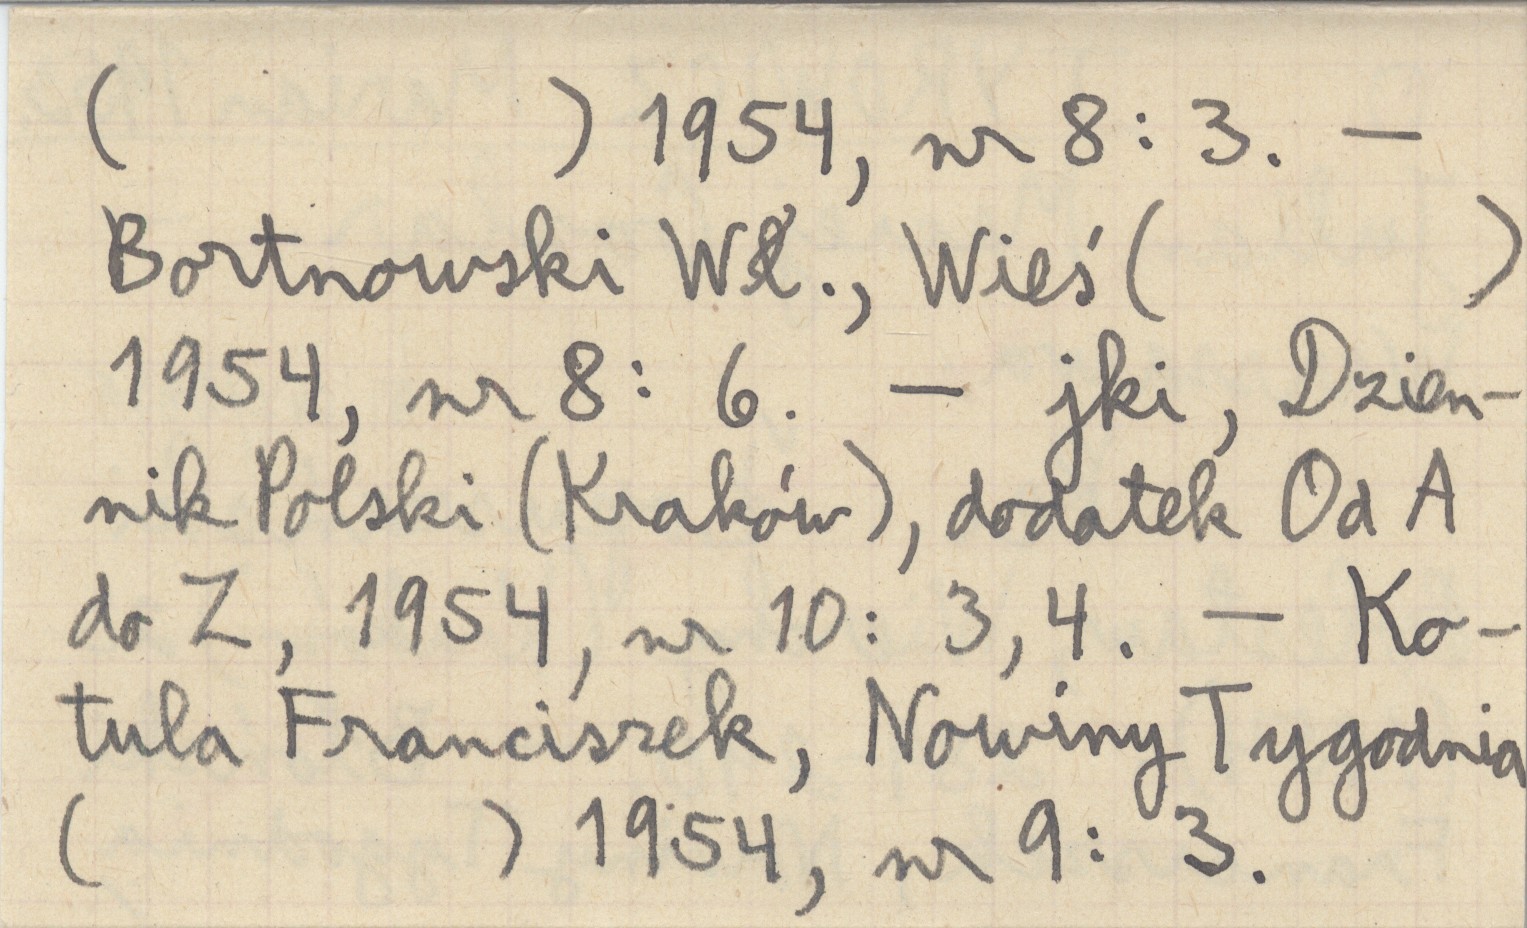 ( ) 1954, nr 8: 3. —
Bortnowski Wł., Wieś ( )
1954, nr 8: 6. — jki, Dzien-
nik Polski (Kraków), dodatek Od A
do Z, 1954, nr 10: 3, 4. — Ko-
tula Franciszek, Nowiny Tygodnia
( ) 1954, nr 9: 3.